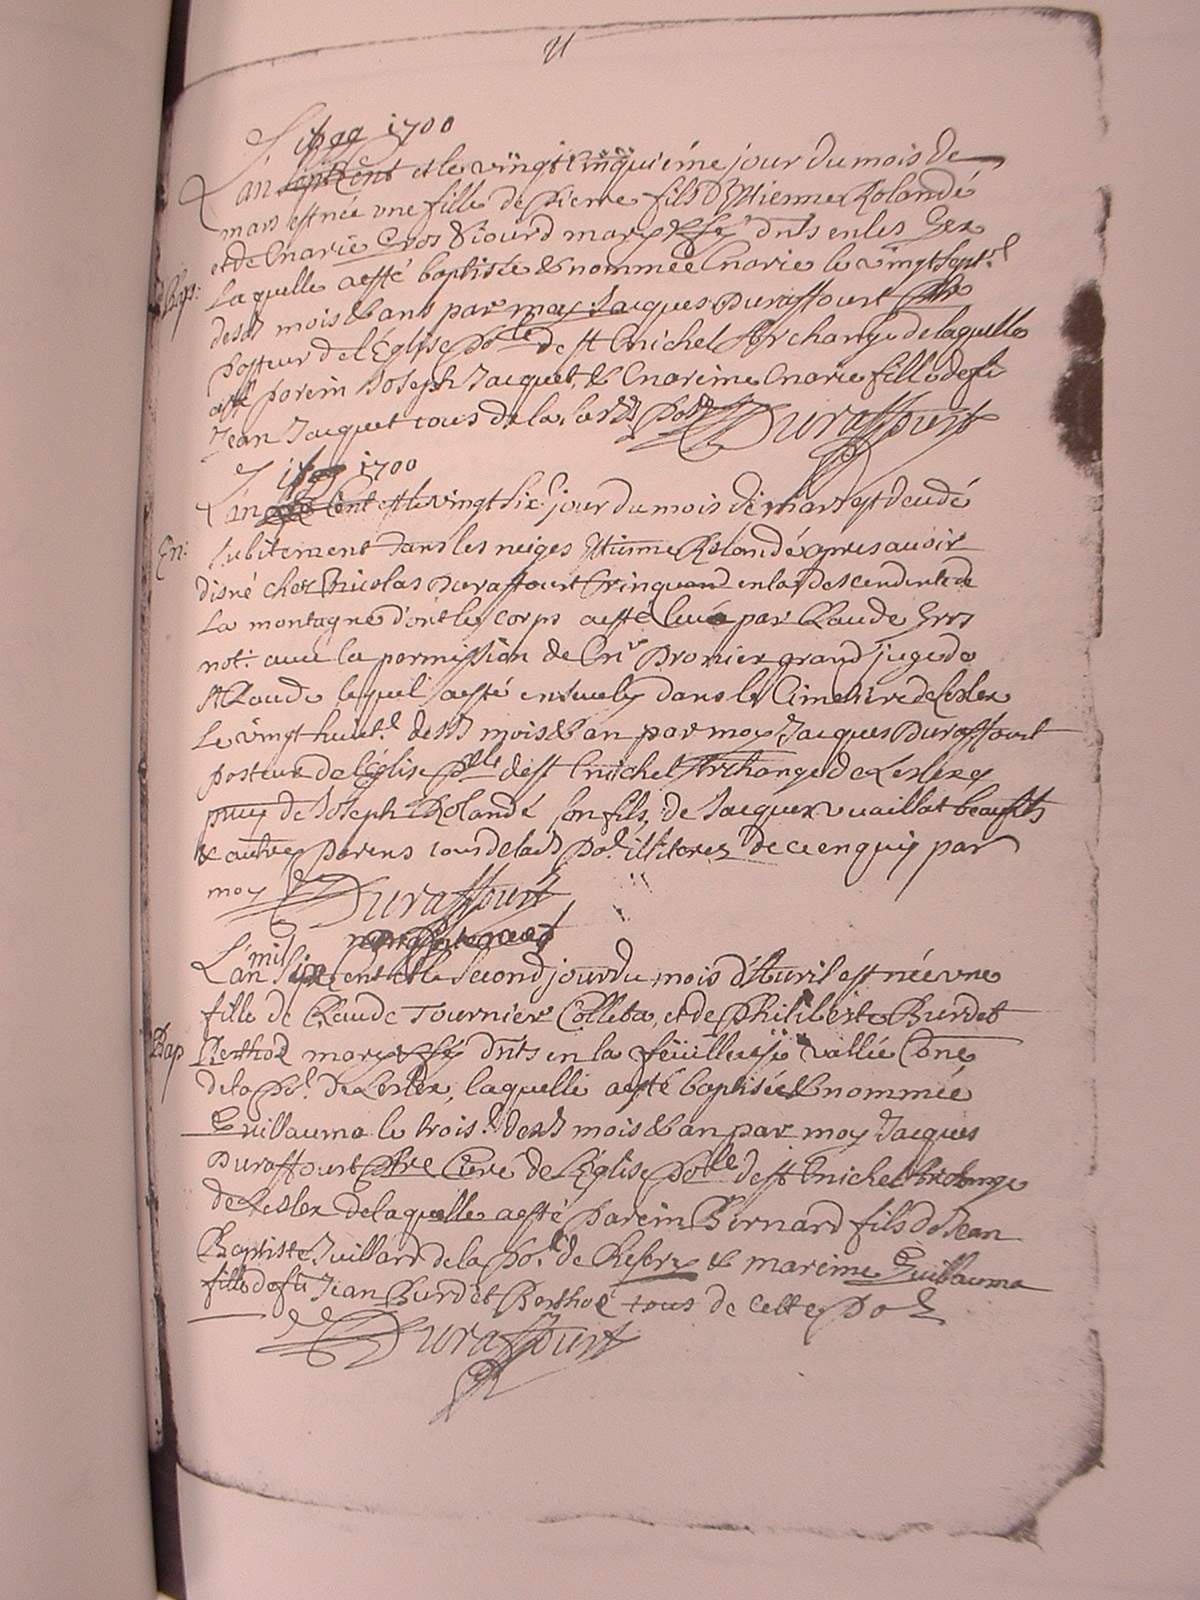 1700
L'an sept Cent et le vingt Cinquiéme jour du mois de
mars est née une fille de pierre fils d'Estienne Rolandé
et de marie Gros Siourd maryez dnts en les Gex
Laquelle a esté baptisée & nommée marie le vingt sept.
Bap:
desdt mois & an par moy Jacques Duraffourt Pbre
pasteur de l'Eglise po.le de st michel Archange de laquelle
a esté parein Joseph Jacquet, & mareine marie fille de fû
Jean Jacquet tous de la susdt po.le Duraffourt
1700
L'an Cent et le vingt six.e jour du mois de mars est decedé
En:
subitement dans les neiges Estienne Rolandé apres avoir
disné chez nicolas Duraffourt Cringuand en la descendente de
La montagne d'ont le corps a esté levé par Claude Gros
not: avec la permission de mr Bronier grand juge de
st Claude lequel a esté ensevely dans le Cimetiere de Lesler
le vingt huict.e desdt mois & an par moy Jacques Duraffourt
pasteur de l'Eglise plle de st michel Archange de Lesler
de Joseph Rolandé son fils, de Jacques vuaillat beaufils
& autres parens tous de ladt po. illiterez de ce enquis par
moy Duraffourt
L'an mil sept Cent et le second jour du mois d'Avril est née une
fille de Claude Tournier Colleta, et de Philiberte Burdet
Bap
Berthod maryez dnts en la feüillée vallée
de la po. de Lesler, laquelle a esté baptisée & nommée
Guillauma le trois.e desdt mois & an par moy Jacques
Duraffourt Pbre Curé de l'Eglise po.lle de st michel Archange
de Lesler de laquelle a esté parein Bernard fils de Jean
Baptiste Juillard de la po. de & mareine Guillauma
fille de fû Jean Burdet Berthod tous de cette po.
Duraffourt